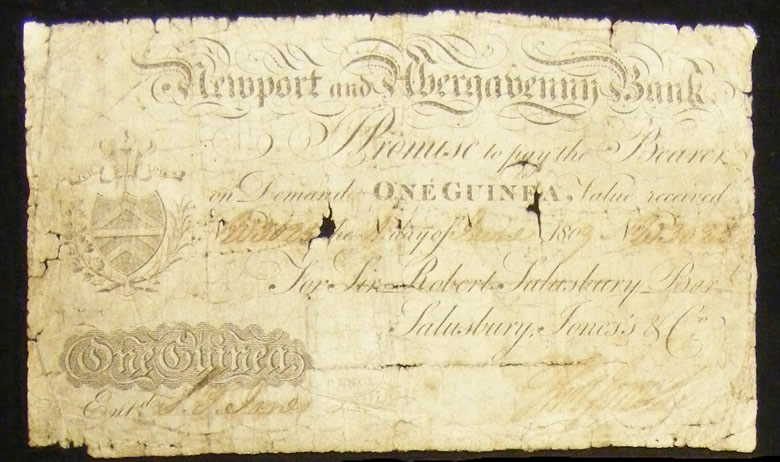 Newport and Abergavenny Bank
I Promise to pay the Bearer
on Demand ONE GUINEA, Value received
the day of June 1809
For Sir Robert Salusbury Bart
Salusbury, Jones's & Co
One Guinea
Entd